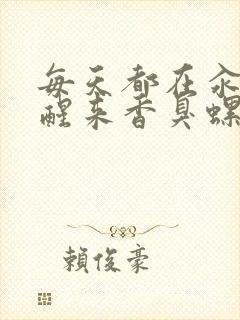 每天都在汆
醒来香臭螺
賴俊豪